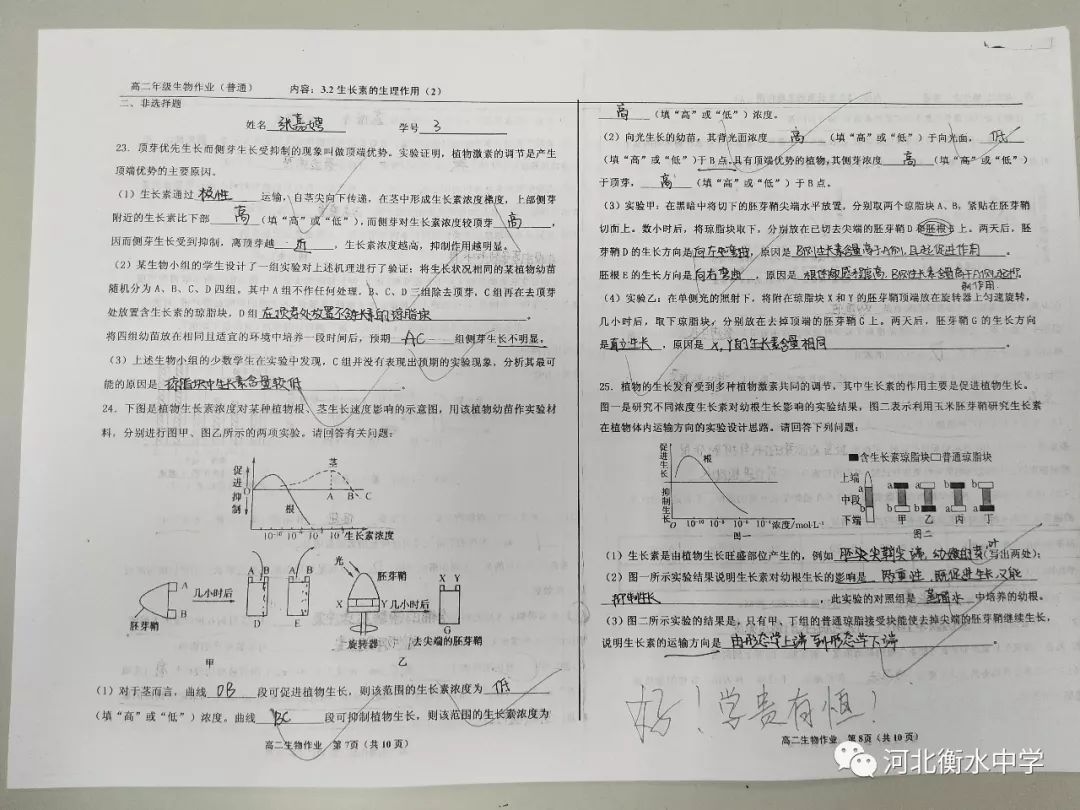 高二年级生物作业（普通） 内容：3.2生长素的生理作用（2）
二、非选择题
姓名 张嘉娉 学号 3
23．顶芽优先生长而侧芽生长受抑制的现象叫做顶端优势。实验证明，植物激素的调节是产生
顶端优势的主要原因。
（1）生长素通过 极性 运输，自茎尖向下传递，在茎中形成生长素浓度梯度，上部侧芽
附近的生长素比下部 高 （填“高”或“低”），而侧芽对生长素浓度较顶芽 高 ，
因而侧芽生长受到抑制，离顶芽越 近 ，生长素浓度越高，抑制作用越明显。
（2）某生物小组的学生设计了一组实验对上述机理进行了验证：将生长状况相同的某植物幼苗
随机分为A、B、C、D四组，其中A组不作任何处理，B、C、D三组除去顶芽，C组再在去顶芽
处放置含生长素的琼脂块，D组 在顶芽处放置不含生长素的琼脂块 。
将四组幼苗放在相同且适宜的环境中培养一段时间后，预期 AC 组侧芽生长不明显。
（3）上述生物小组的少数学生在实验中发现，C组并没有表现出预期的实验现象，分析其最可
能的原因是 琼脂块中生长素含量较低 。
24．下图是植物生长素浓度对某种植物根、茎生长速度影响的示意图，用该植物幼苗作实验材
料，分别进行图甲、图乙所示的两项实验。请回答有关问题：
促进 抑制 O 茎 根 A B C
10⁻¹⁰ 10⁻⁸ 10⁻⁶ 10⁻⁴ 生长素浓度
A B 胚芽鞘 几小时后 A B D A B E
甲
光 胚芽鞘 X Y 旋转器 几小时后 X Y G 去尖端的胚芽鞘
乙
（1）对于茎而言，曲线 OB 段可促进植物生长，则该范围的生长素浓度为 低
（填“高”或“低”）浓度。曲线 BC 段可抑制植物生长，则该范围的生长素浓度为
高二生物作业 第7页（共10页）
高 （填“高”或“低”）浓度。
（2）向光生长的幼苗，其背光面浓度 高 （填“高”或“低”）于向光面， 低
（填“高”或“低”）于B点。具有顶端优势的植物，其侧芽浓度 高 （填“高”或“低”）
于顶芽， 高 （填“高”或“低”）于B点。
（3）实验甲：在黑暗中将切下的胚芽鞘尖端水平放置，分别取两个琼脂块A、B，紧贴在胚芽鞘
切面上。数小时后，将琼脂块取下，分别放在已切去尖端的胚芽鞘D和胚根E上。两天后，胚
芽鞘D的生长方向是向左弯曲，原因是 B侧生长素含量高于A侧，且起促进作用
胚根E的生长方向是向右弯曲 ，原因是 根使敏感性较高，B侧生长素含量高于A侧，起抑
制作用．
（4）实验乙：在单侧光的照射下，将附在琼脂块X和Y的胚芽鞘顶端放在旋转器上匀速旋转，
几小时后，取下琼脂块，分别放在去掉顶端的胚芽鞘G上，两天后，胚芽鞘G的生长方向
是直立生长 ，原因是 X，Y的生长素含量相同
25．植物的生长发育受到多种植物激素共同的调节，其中生长素的作用主要是促进植物生长。
图一是研究不同浓度生长素对幼根生长影响的实验结果，图二表示利用玉米胚芽鞘研究生长素
在植物体内运输方向的实验设计思路。请回答下列问题：
促进生长 抑制生长 根 O 10⁻¹⁰ 10⁻⁸ 10⁻⁶ 10⁻⁴ 浓度/mol·L⁻¹
图一
■含生长素琼脂块□普通琼脂块
上端 中段 下端 a b 甲 乙 丙 丁
图二
（1）生长素是由植物生长旺盛部位产生的，例如 胚芽尖鞘尖端，幼嫩的芽叶（写出两处）；
（2）图一所示实验结果说明生长素对幼根生长的影响是 两重性，既促进生长，又能
抑制生长 ，此实验的对照组是 蒸馏水 中培养的幼根。
（3）图二所示实验的结果是，只有甲、丁组的普通琼脂接受块能使去掉尖端的胚芽鞘继续生长，
说明生长素的运输方向是 由形态学上端到形态学下端 。
好！学贵有恒！
高二生物作业 第8页（共10页）
河北衡水中学